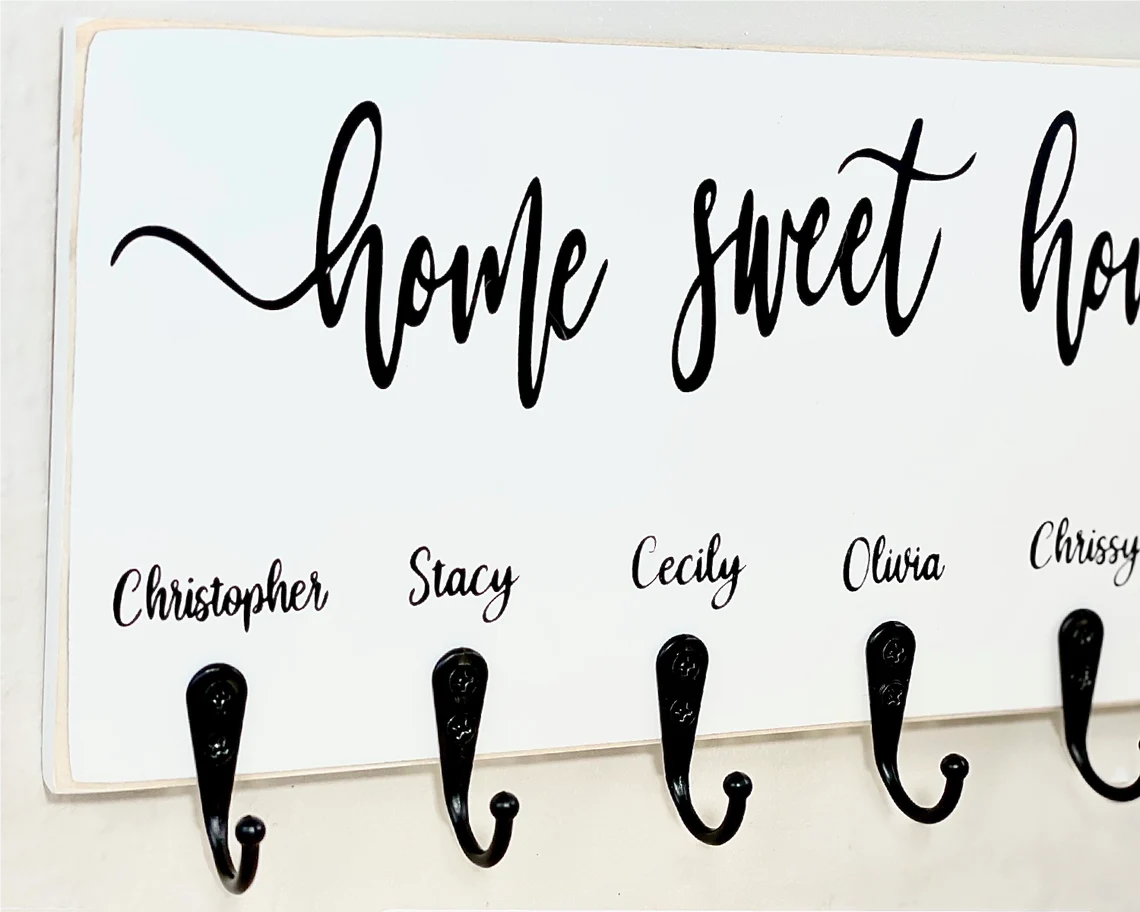 home sweet hom
Christopher Stacy Cecily Olivia Chrissy